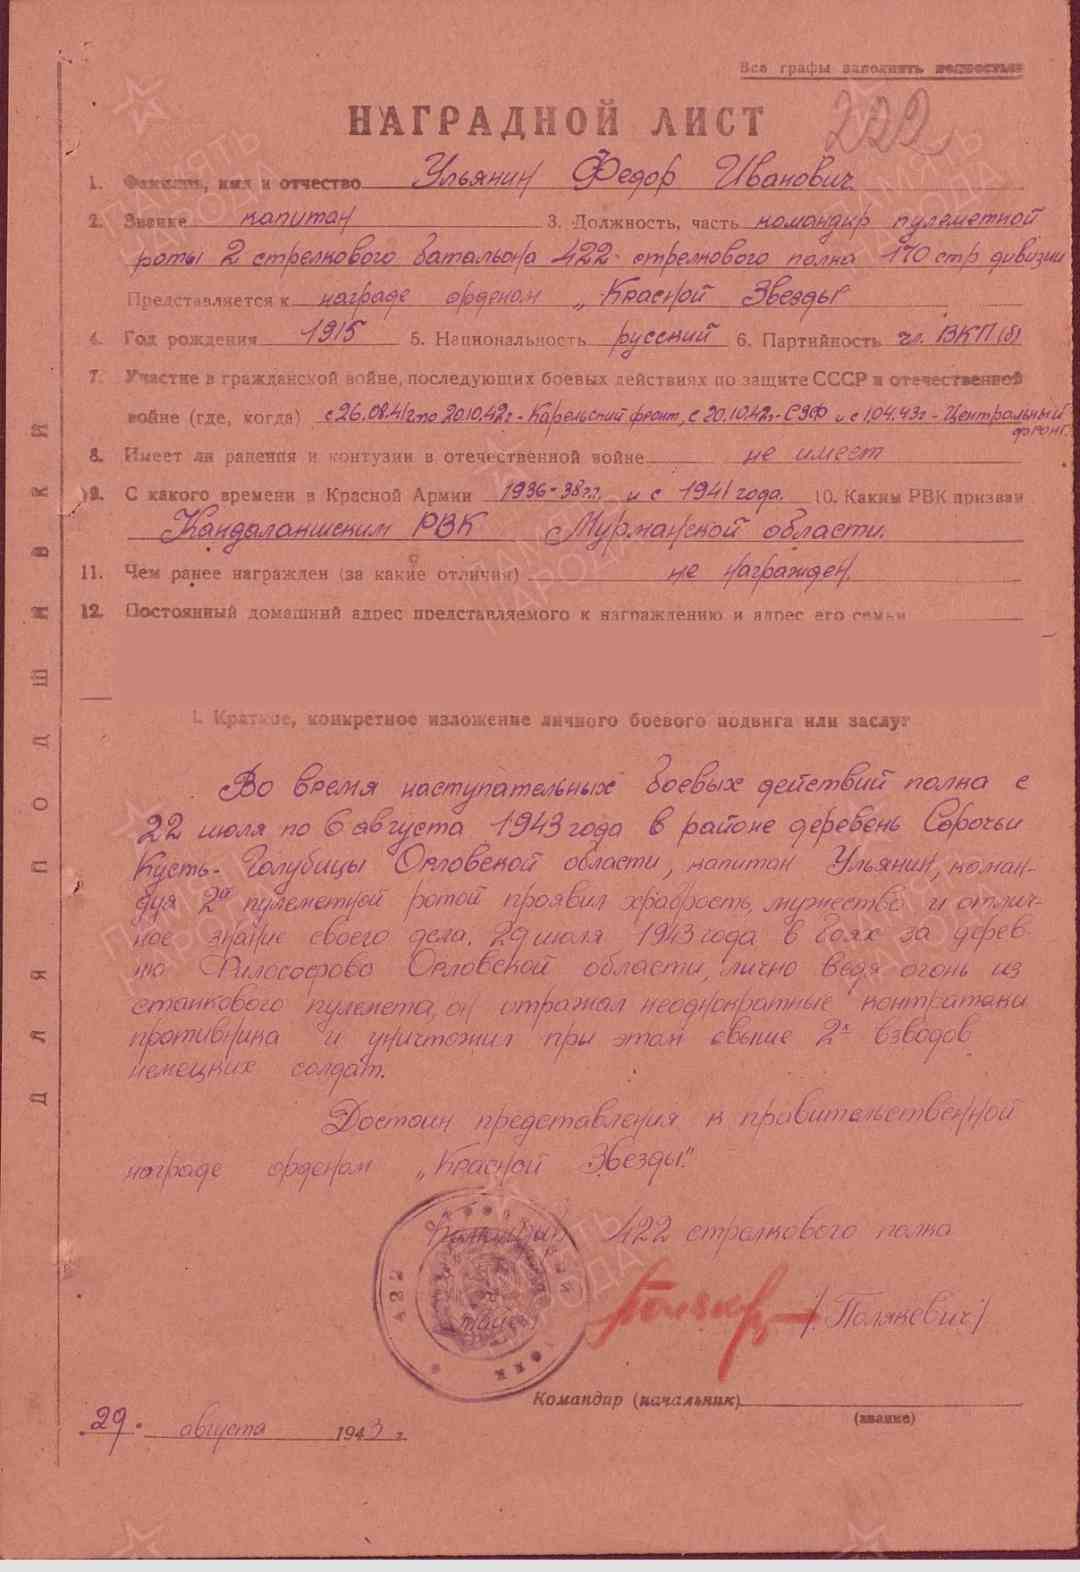 Все графы заполнить полностью
НАГРАДНОЙ ЛИСТ 222
1. Фамилия, имя и отчество Ульянин Федор Иванович
2. Звание капитан 3. Должность, часть командир пулеметной
роты 2 стрелкового батальона 422 стрелкового полка 170 стр дивизии
Представляется к награде орденом „Красной Звезды"
4. Год рождения 1915 5. Национальность русский 6. Партийность чл. ВКП(б)
7. Участие в гражданской войне, последующих боевых действиях по защите СССР и отечественной
войне (где, когда) с 26.08.41г по 20.10.42г - Карельский фронт, с 20.10.42г - СЗФ и с 1.04.43г - Центральный
фронт.
8. Имеет ли ранения и контузии в отечественной войне не имеет
9. С какого времени в Красной Армии 1936-38гг. и с 1941 года. 10. Каким РВК призван
Кандалакшским РВК Мурманской области.
11. Чем ранее награжден (за какие отличия) не награжден.
12. Постоянный домашний адрес представляемого к награждению и адрес его семьи
I. Краткое, конкретное изложение личного боевого подвига или заслуг
Во время наступательных боевых действий полка с
22 июля по 6 августа 1943 года в районе деревень Сорочьи
Кусты-Голубицы Орловской области, капитан Ульянин, коман-
дуя 2ой пулеметной ротой проявил храбрость, мужество и отлич-
ное знание своего дела. 29 июля 1943 года в боях за дерев-
ню Философово Орловской области, лично ведя огонь из
станкового пулемета, он отражал неоднократные контратаки
противника и уничтожил при этом свыше 2х взводов
немецких солдат.
Достоин представления к правительственной
награде орденом „Красной Звезды".
Командир 422 стрелкового полка
/Полякевич/
Командир (начальник)
(звание)
29. августа 1943 г.
ДЛЯ ПОДШИВКИ
ПАМЯТЬ
НАРОДА